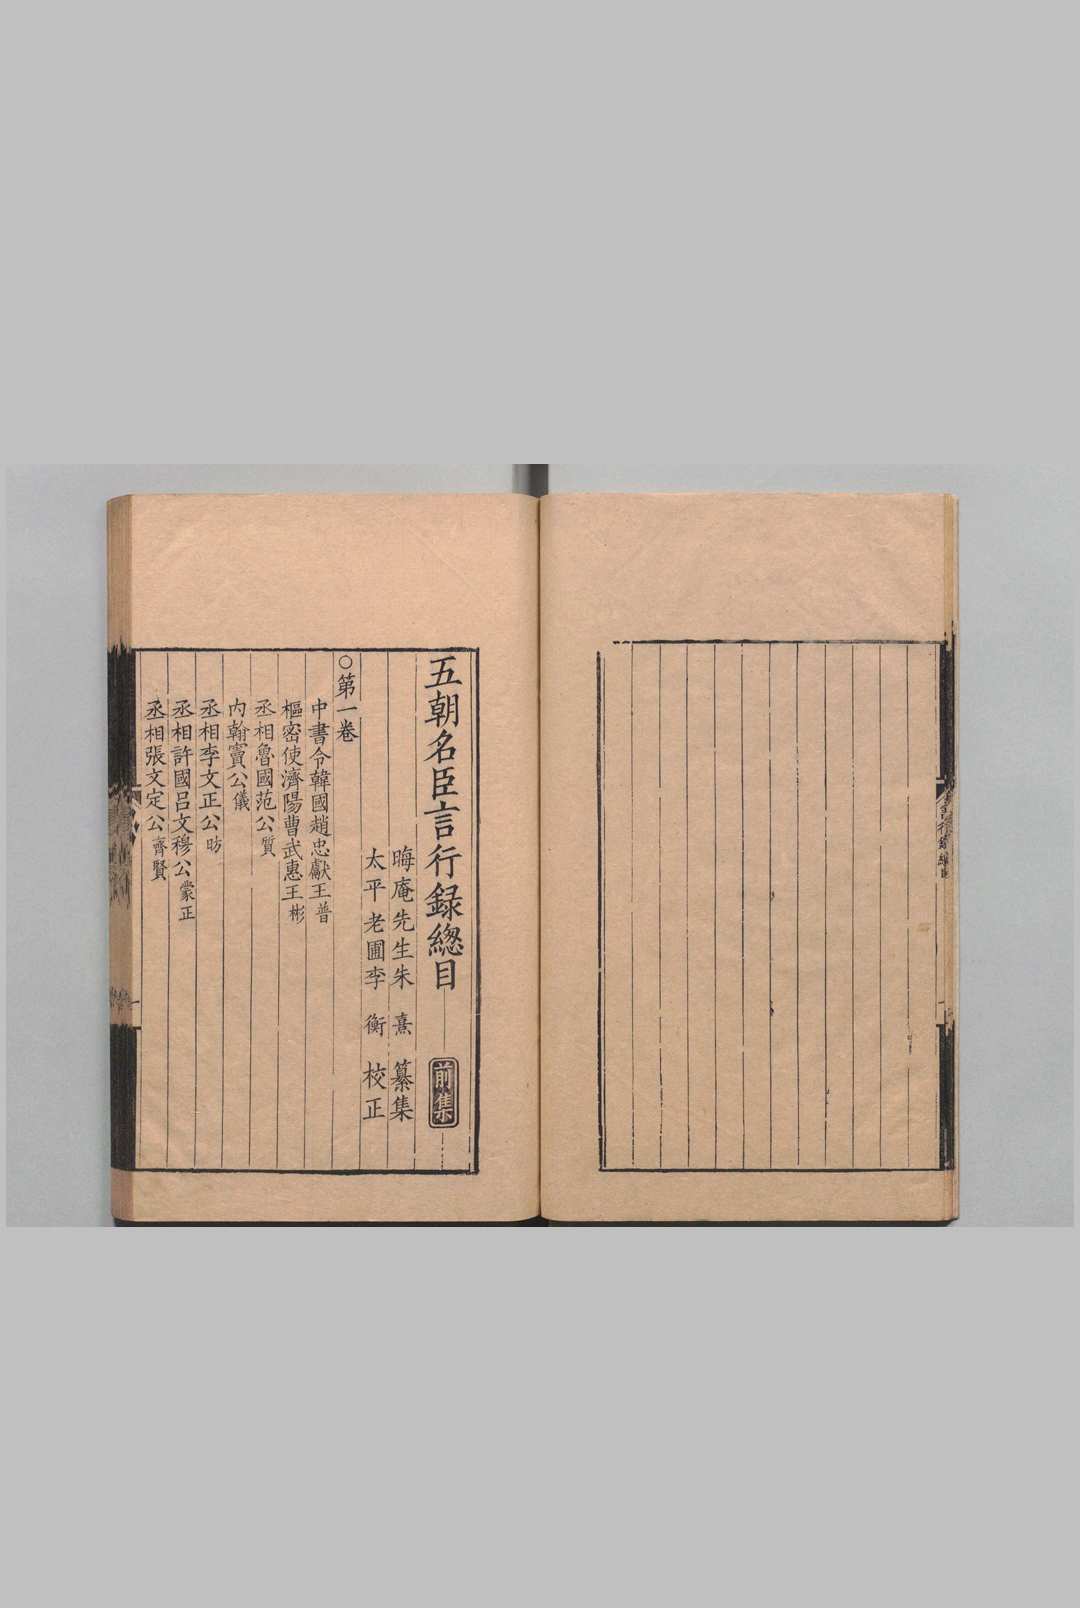 五朝名臣言行録總目 前集
晦庵先生朱熹纂集
太平老圃李衡校正
○第一卷
中書令韓國趙忠獻王普
樞密使濟陽曹武惠王彬
丞相魯國范公質
内翰竇公儀
丞相李文正公昉
丞相許國吕文穆公蒙正
丞相張文定公齊賢